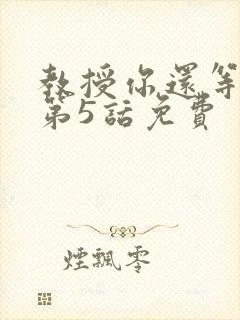 教授你還等
第5話免費
煙飄零